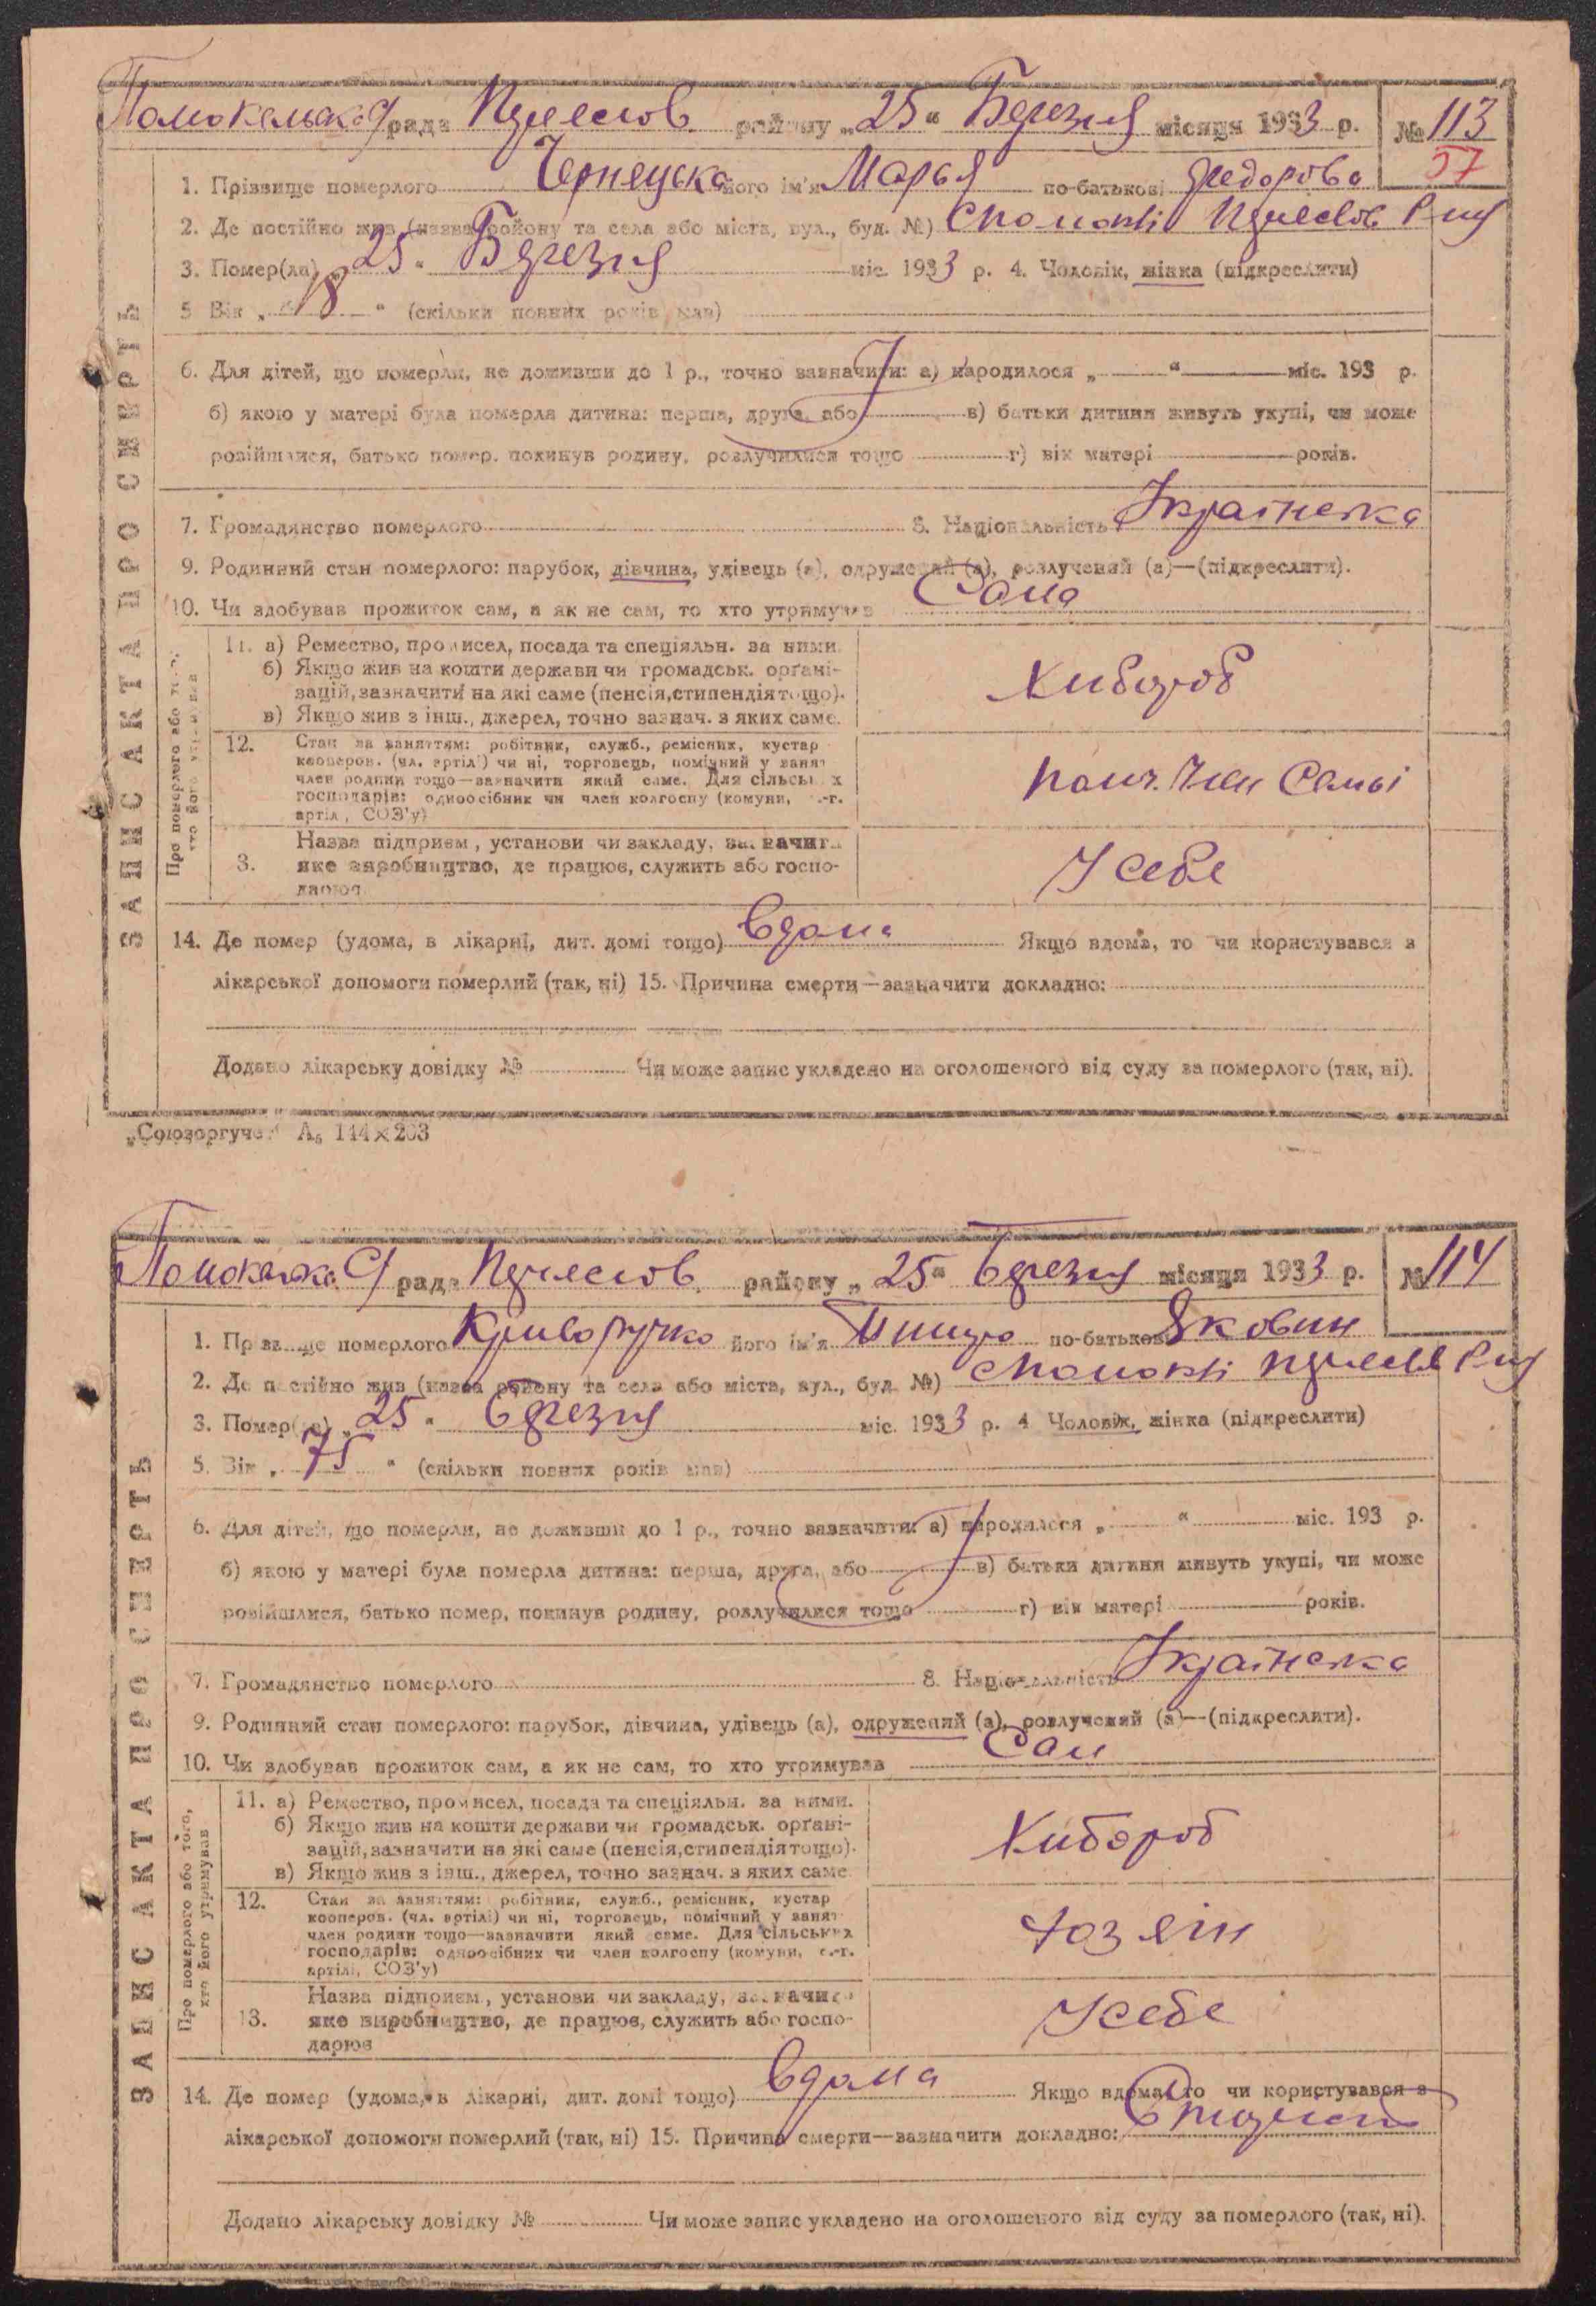 рада Переяслов району „25“ Березня місяця 1933 р. № 113
57
1. Прізвище померлого Чернецька його ім'я Марья по-батькові Федорова
2. Де постійно жив (назва району та села або міста, вул., буд. №) с Помоклі
3. Помер(ла) „25“ Березня міс. 1933 р. 4. Чоловік, жінка (підкреслити)
5 Вік „18“ (скільки повних років мав)
6. Для дітей, що померли, не доживши до 1 р., точно зазначити: а) народилося „ “ міс. 193 р.
б) якою у матері була померла дитина: перша, друга, або в) батьки дитини живуть укупі, чи може
розійшлися, батько помер, покинув родину, розлучилися тощо г) вік матері років.
7. Громадянство померлого 8. Національність Українка
9. Родинний стан померлого: парубок, дівчина, удівець (а), одружений (а), розлучений (а)—(підкреслити).
10. Чи здобував прожиток сам, а як не сам, то хто утримував Сама
ЗАПИС АКТА ПРО СМЕРТЬ
Про померлого або того,
хто його утримував
11. а) Ремество, промисел, посада та спеціяльн. за ними.
б) Якщо жив на кошти держави чи громадськ. органі-
зацій, зазначити на які саме (пенсія, стипендія тощо).
в) Якщо жив з інш., джерел, точно зазнач. з яких саме.
Хлібороб
12. Стан за заняттям: робітник, служб., ремісник, кустар
кооперов. (чл. артілі) чи ні, торговець, помічний у занят
член родини тощо—зазначити який саме. Для сільських
господарів: одноосібник чи член колгоспу (комуни, с.-г.
артілі, СОЗ'у)
член Семьі
3. Назва підприєм., установи чи закладу, зазначити
яке виробництво, де працює, служить або госпо-
дарює
У себе
14. Де помер (удома, в лікарні, дит. домі тощо) Вдома Якщо вдома, то чи користувався з
лікарської допомоги померлий (так, ні) 15. Причина смерти—зазначити докладно:
Додано лікарську довідку № Чи може запис укладено на оголошеного від суду за померлого (так, ні).
„Союзоргучет“ А₅ 144×203
рада Переяслов району „25“ Березня місяця 1933 р. № 114
1. Прізвище померлого Криворучко його ім'я по-батькові Якович
2. Де постійно жив (назва району та села або міста, вул., буд. №) с Помоклі
3. Помер(ла) „25“ Березня міс. 1933 р. 4 Чоловік, жінка (підкреслити)
5. Вік „75“ (скільки повних років мав)
6. Для дітей, що померли, не доживши до 1 р., точно зазначити: а) народилося „ “ міс. 193 р.
б) якою у матері була померла дитина: перша, друга, або в) батьки дитини живуть укупі, чи може
розійшлися, батько помер, покинув родину, розлучилися тощо г) вік матері років.
7. Громадянство померлого 8. Національність Українка
9. Родинний стан померлого: парубок, дівчина, удівець (а), одружений (а), розлучений (а)—(підкреслити).
10. Чи здобував прожиток сам, а як не сам, то хто утримував Сам
ЗАПИС АКТА ПРО СМЕРТЬ
Про померлого або того,
хто його утримував
11. а) Ремество, промисел, посада та спеціяльн. за ними.
б) Якщо жив на кошти держави чи громадськ. органі-
зацій, зазначити на які саме (пенсія, стипендія тощо).
в) Якщо жив з інш., джерел, точно зазнач. з яких саме
Хлібороб
12. Стан за заняттям: робітник, служб., ремісник, кустар
кооперов. (чл. артілі) чи ні, торговець, помічний у занят
член родини тощо—зазначити який саме. Для сільських
господарів: одноосібник чи член колгоспу (комуни, с.-г.
артілі, СОЗ'у)
Хозяїн
13. Назва підприєм., установи чи закладу, зазначити
яке виробництво, де працює, служить або госпо-
дарює
У себе
14. Де помер (удома, в лікарні, дит. домі тощо) Вдома Якщо вдома, то чи користувався з
лікарської допомоги померлий (так, ні) 15. Причина смерти—зазначити докладно:
Додано лікарську довідку № Чи може запис укладено на оголошеного від суду за померлого (так, ні).